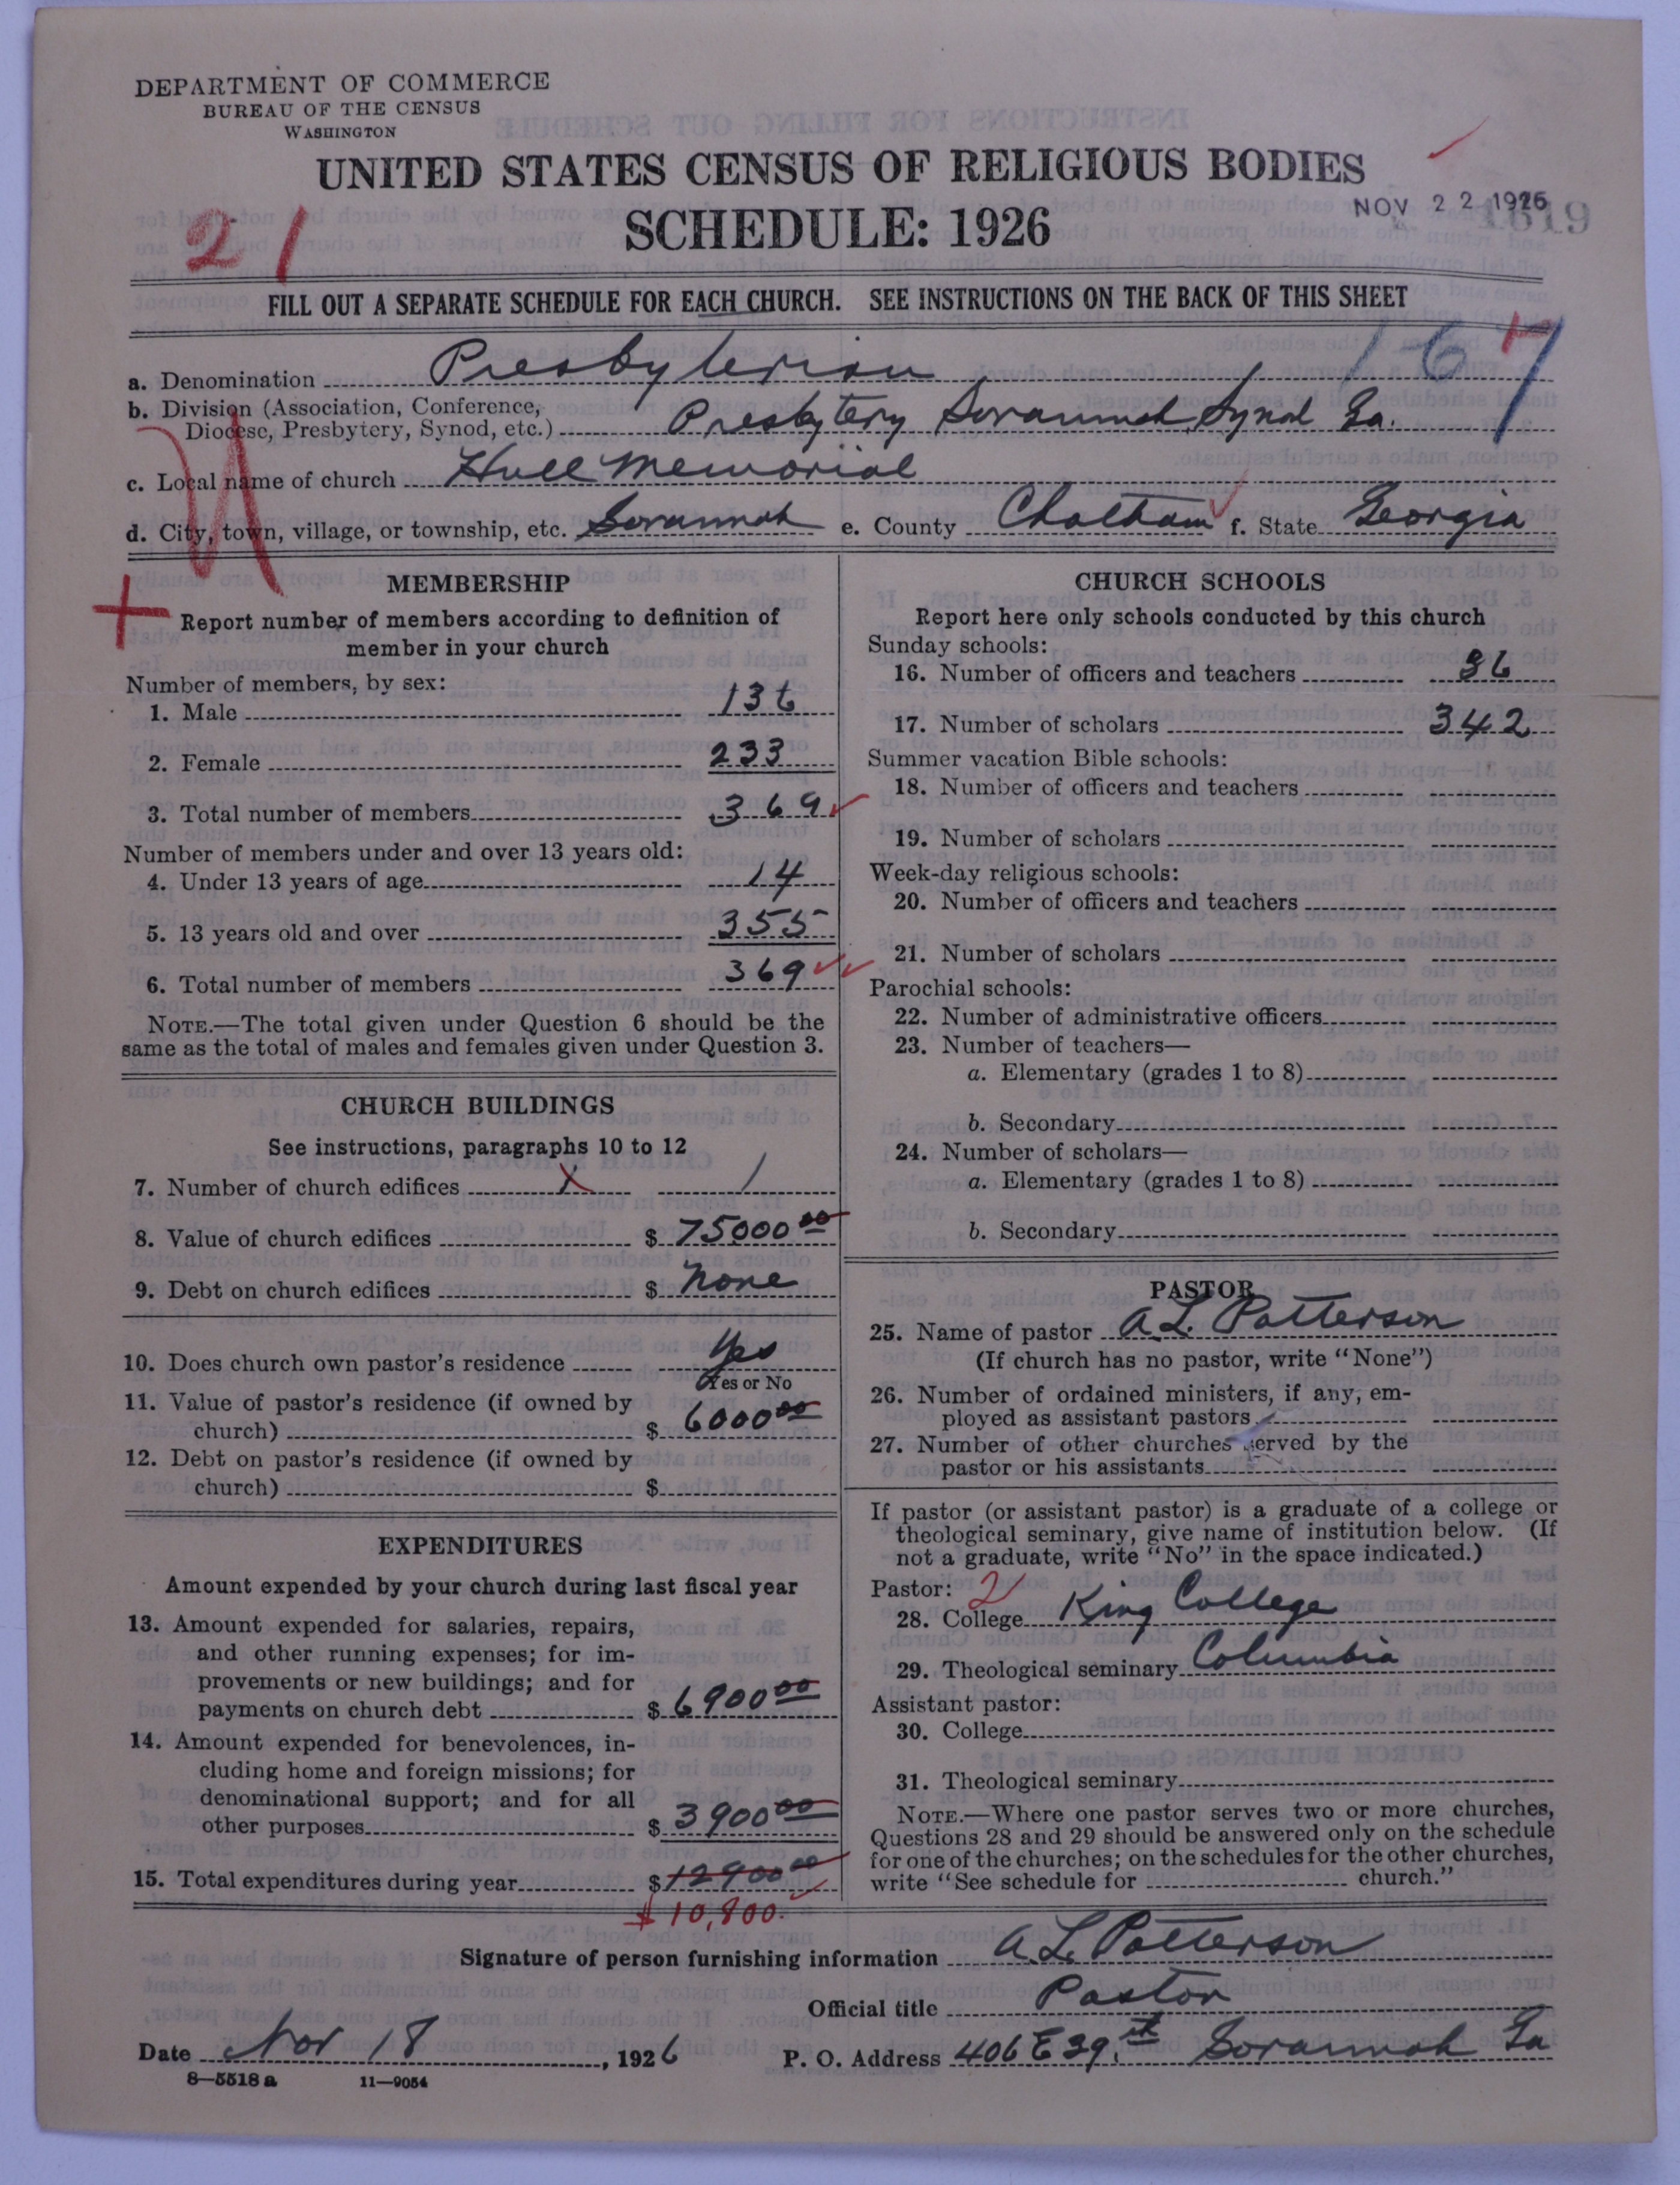 DEPARTMENT OF COMMERCE
BUREAU OF THE CENSUS
WASHINGTON
UNITED STATES CENSUS OF RELIGIOUS BODIES
SCHEDULE: 1926
NOV 22 1926
21
FILL OUT A SEPARATE SCHEDULE FOR EACH CHURCH. SEE INSTRUCTIONS ON THE BACK OF THIS SHEET
167
a. Denomination Presbyterian
b. Division (Association, Conference, Diocese, Presbytery, Synod, etc.) Presbytery Savannah, Synod Ga.
c. Local name of church Hull Memorial
d. City, town, village, or township, etc. Savannah e. County Chatham f. State Georgia
MEMBERSHIP
Report number of members according to definition of
member in your church
Number of members, by sex:
1. Male 136
2. Female 233
3. Total number of members 369
Number of members under and over 13 years old:
4. Under 13 years of age 14
5. 13 years old and over 355
6. Total number of members 369
NOTE.—The total given under Question 6 should be the
same as the total of males and females given under Question 3.
CHURCH BUILDINGS
See instructions, paragraphs 10 to 12
7. Number of church edifices 1
8. Value of church edifices $ 75000 00
9. Debt on church edifices $ None
10. Does church own pastor's residence Yes
Yes or No
11. Value of pastor's residence (if owned by
church) $ 6000 00
12. Debt on pastor's residence (if owned by
church) $
EXPENDITURES
Amount expended by your church during last fiscal year
13. Amount expended for salaries, repairs,
and other running expenses; for im-
provements or new buildings; and for
payments on church debt $ 6900 00
14. Amount expended for benevolences, in-
cluding home and foreign missions; for
denominational support; and for all
other purposes $ 3900 00
15. Total expenditures during year $ 12900 00
$ 10,800.
CHURCH SCHOOLS
Report here only schools conducted by this church
Sunday schools:
16. Number of officers and teachers 36
17. Number of scholars 342
Summer vacation Bible schools:
18. Number of officers and teachers
19. Number of scholars
Week-day religious schools:
20. Number of officers and teachers
21. Number of scholars
Parochial schools:
22. Number of administrative officers
23. Number of teachers—
a. Elementary (grades 1 to 8)
b. Secondary
24. Number of scholars—
a. Elementary (grades 1 to 8)
b. Secondary
PASTOR
25. Name of pastor A. L. Patterson
(If church has no pastor, write "None")
26. Number of ordained ministers, if any, em-
ployed as assistant pastors
27. Number of other churches served by the
pastor or his assistants
If pastor (or assistant pastor) is a graduate of a college or
theological seminary, give name of institution below. (If
not a graduate, write "No" in the space indicated.)
Pastor: 2
28. College King College
29. Theological seminary Columbia
Assistant pastor:
30. College
31. Theological seminary
NOTE.—Where one pastor serves two or more churches,
Questions 28 and 29 should be answered only on the schedule
for one of the churches; on the schedules for the other churches,
write "See schedule for church."
Signature of person furnishing information A. L. Patterson
Official title Pastor
Date Nov 18, 1926 P. O. Address 406 E 39th Savannah Ga
8—5518 a 11—9054